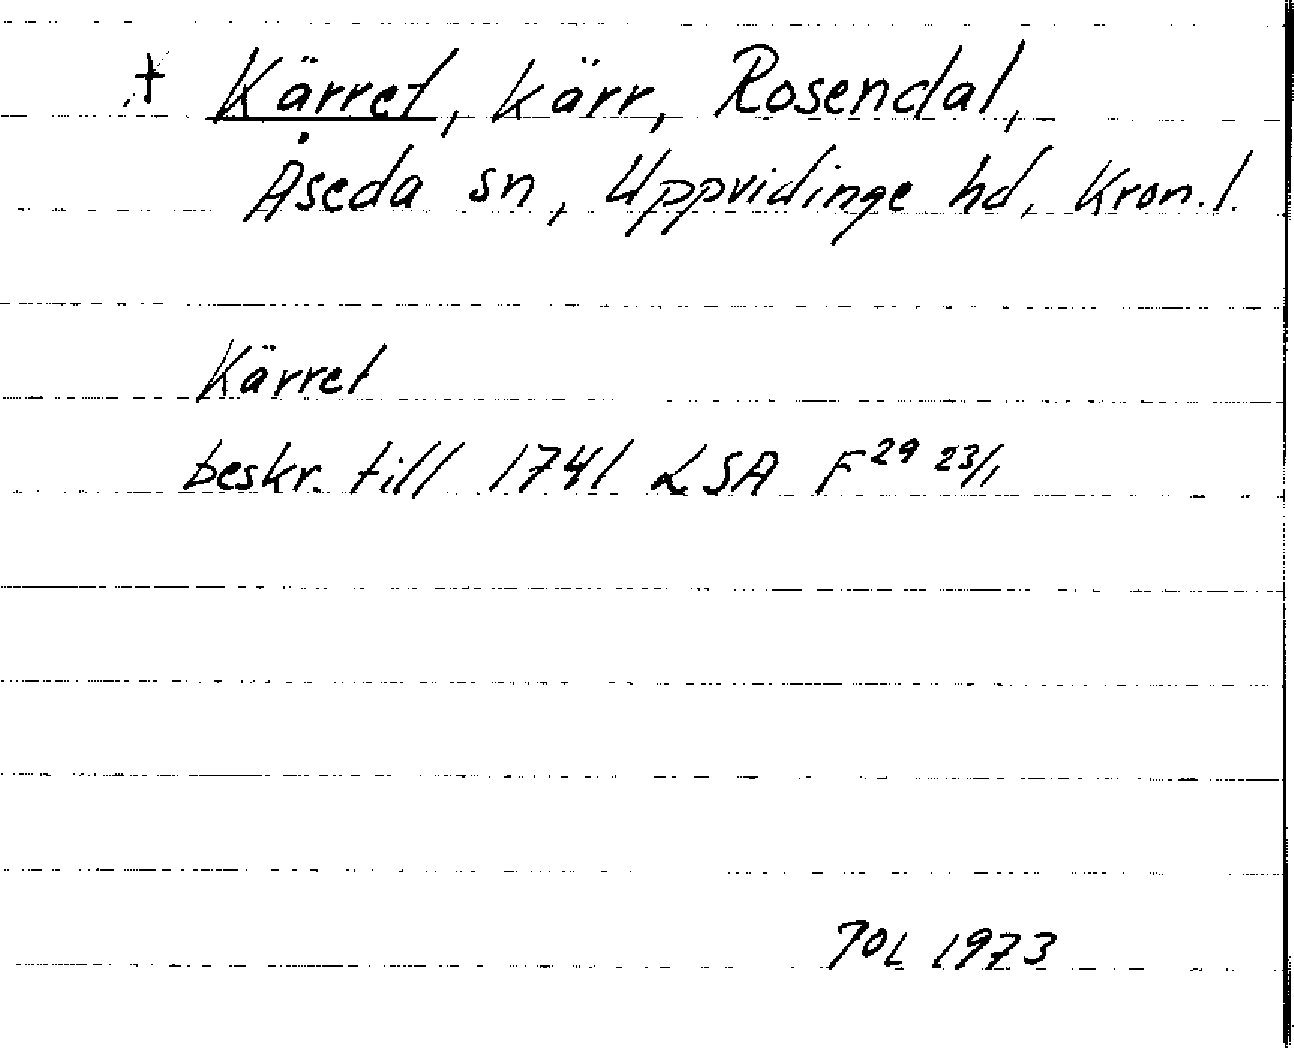 † Kärret, kärr, Rosendal,
Åseda sn, Uppvidinge hd, Kron.l.
Kärret
beskr. till 1741 LSA F²⁹ ²³/₁
TOL 1973